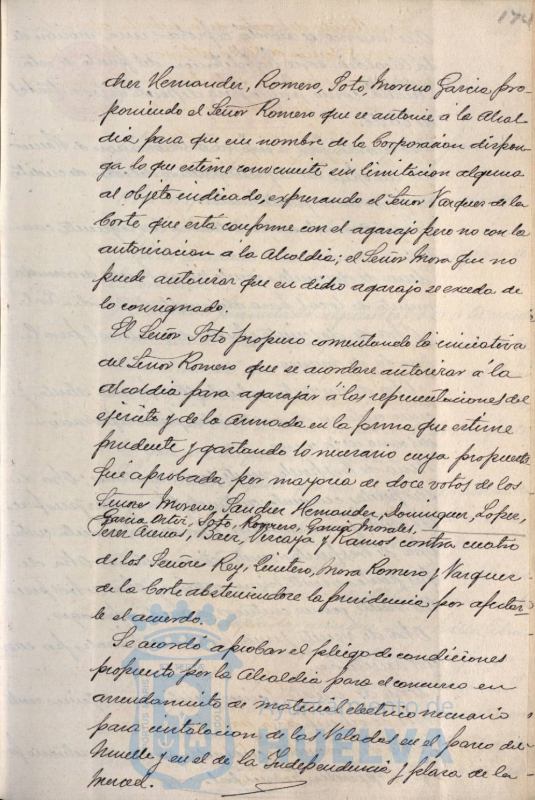 174
chez Hernandez, Romero, Soto, Moreno Garcia pro-
poniendo el Señor Romero que se autorice á la Alcal
dia para que en nombre de la Corporacion dispon-
ga lo que estime conveniente sin limitacion alguna
al objeto indicado, expresando el Señor Vazquez de la
Corte que está conforme con el agasajo pero no con la
autorizacion a la Alcaldia; el Señor Mora que no
puede autorizar que en dicho agasajo se exceda de
lo consignado.
El Señor Soto propuso comentando la iniciativa
del Señor Romero que se acordase autorizar á la
Alcaldia para agasajar á las representaciones del
ejército y de la Armada en la forma que estime
prudente y gastando lo necesario cuya propuesta
fué aprobada por mayoria de doce votos de los
Señores Moreno, Sanchez Hernandez, Dominguez, Lopez,
Garcia Ortiz, Soto, Romero, Garcia Morales,
Perez Arenas, Baez, Vizcaya y Ramos contra cuatro
de los Señores Rey, Quintero, Mora Romero y Vazquez
de la Corte absteniendose la presidencia por afectar-
le el acuerdo.
Se acordó aprobar el pliego de condiciones
propuesto por la Alcaldia para el concurso en
arrendamiento de material electrico necesario
para instalacion de las Veladas en el paseo del
Muelle y en el de la Independencia y plaza de la
Merced.
Ayuntamiento de
HUELVA